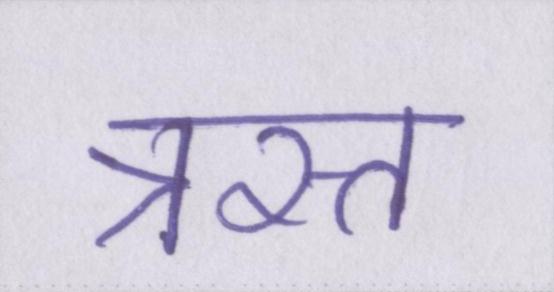 त्रस्त